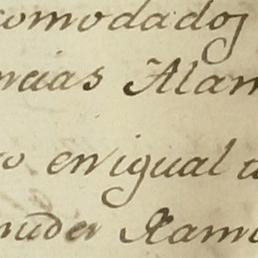 comodados
ncias Alam
o en igual
mudez Rami